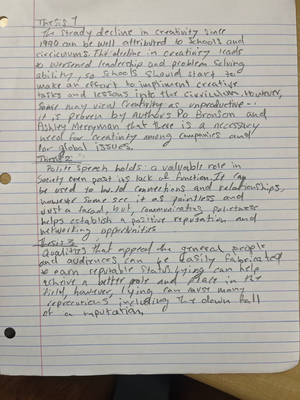 Thesis 1
The steady decline in creativity since
1990 can be well attributed to schools and
cirriculums. The decline in creativity leads
to worsened leadership and problem solving
ability, so schools should start to
make an effort to impliment creative
tasks and lessons into the cirriculum. However,
some may view creativity as unproductive..
it is proven by authors Po Bronson and
Ashley Merryman that there is a necessary
need for creativity among companies and
for global issues.
Thesis 2
Polite speech holds a valuable role in
society even past its lack of function. It can
be used to build connections and relationships,
however some see it as pointless and
just a facad, but, communicating politeness
helps establish a positive reputation and
networking opportunities
Thesis 3
Qualities that appeal the general people
and audiences can be easily fabricated
to earn reputable status. Lying can help
achieve a better pole and place in the
field, however, lying can cause many
reprecutions including the down fall
of a reputation.